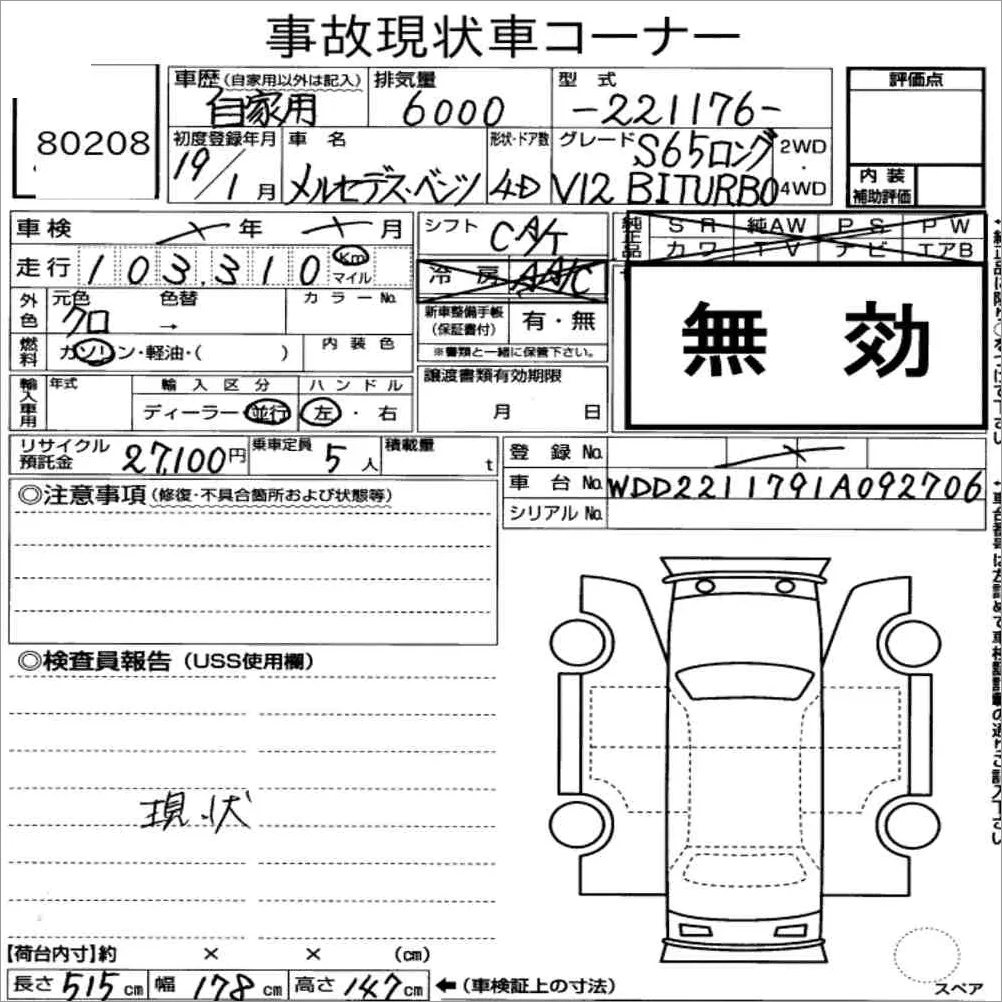 事故現状車コーナー
80208
車歴(自家用以外は記入) 自家用
排気量 6000
型式 -221176-
評価点
初度登録年月 19/1月
車名 メルセデス・ベンツ
形状・ドア数 4D
グレード S65ロング V12 BITURBO
2WD・4WD
内装補助評価
車検 年 月
シフト CA/T
純正品 SR 純AW PS PW
カワ TV ナビ エアB
走行 103,310 Km マイル
冷房 A/C
無効
外色 元色 クロ 色替 →
カラーNo.
新車整備手帳(保証書付) 有・無
※書類と一緒に保管下さい。
燃料 ガソリン・軽油・( )
内装色
輸入車用 年式
輸入区分 ディーラー 並行
ハンドル 左・右
譲渡書類有効期限
月 日
リサイクル預託金 27,100円
乗車定員 5人
積載量 t
登録No.
車台No. WDD2211791A092706
シリアルNo.
◎注意事項(修復・不具合箇所および状態等)
◎検査員報告(USS使用欄)
現状
【荷台内寸】約 × × (cm)
長さ 515cm 幅 178cm 高さ 147cm ←(車検証上の寸法)
スペア